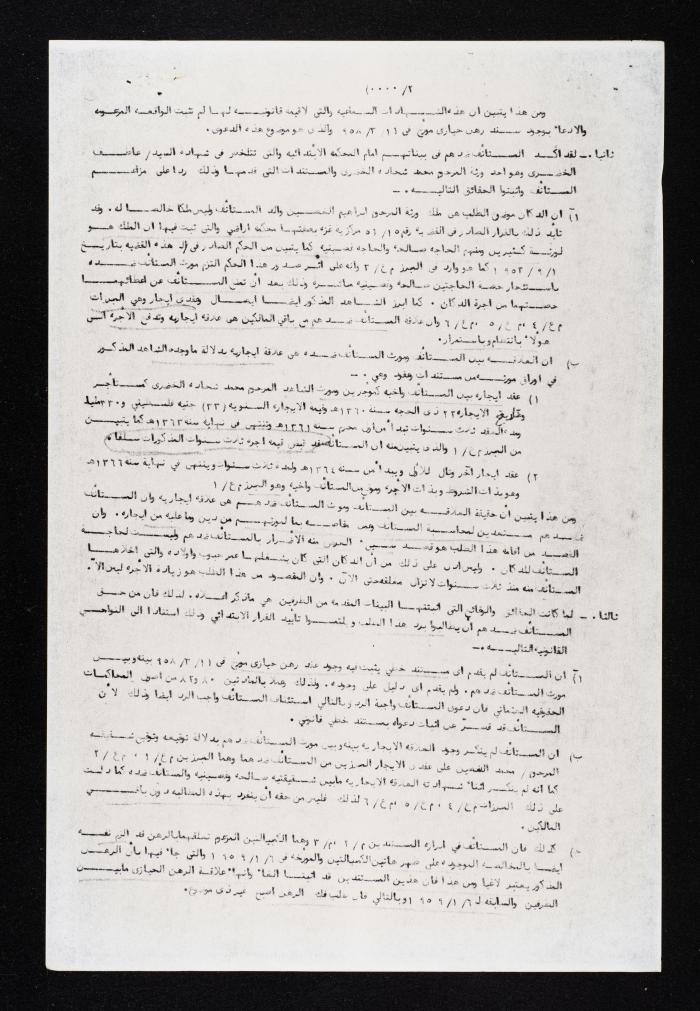 ٢/ (٠٠٠٠
ومن هذا يتبين ان هذه الشهادات السماعيه والتى لاقيمة قانونيه لهـا لم تثبت الواقعه المزعومه
والادعاء بوجود سند رهن حيازى مؤرخ فى ١١/ ٣/ ٩٥٨ والذى هو موضوع هذه الدعوى ٠
ثانيا ٠ــ لقد أكـد المستأنف ضدهم فى بيناتهم امام المحكمه الابتدائيه والتى تتلخص فى شهادة السيد/ عاطـف
الخضرى وهو احد ورثة المرحوم محمد شحاده الخضرى والمستندات التى قدمها وذلك ردا على مزاعـم
المستأنف واثبتوا الحقائق التاليـه ٠ــ
أ) ان الدكان موضوع الطلب هى ملك ورثة المرحوم ابراهيم الغصين والد المستأنف وليس ملكا خالصا له ٠ وقد
تأيد ذلك بالقرار الصادر فى القضية رقم ١٥/ ٥٤ مركزية غزه بصفتها محكمة اراضي والتى ثبت فيها ان الملك هـو
لورثـة كثيرين ومنهم الحاجه صالحه والحاجه نفيسه كما يتبين من الحكم الصادر فى هذه القضيه بتاريـخ
٩/ ١/ ١٩٥٣ كما هو وارد فى المبرز م ع/ ٣ وانه على أثـر صدور هذا الحكم التزم مورث المستأنف ضـده
باستئجار حصة الحاجتين صالحه ونفيسه مباشره وذلك بعد ان تمنع المستأنف عن اعطائهمـا
حصتهما من اجرة الدكان ٠ كما ابرز الشاهد المذكور ايضا ايصال وعقدى ايجار وهى المبرزات
م ع/ ٤ ٠م ع/ ٥ ٠م ع/ ٦ وان علاقة المستأنف ضدهم مع باقي المالكين هى علاقة ايجاريه وتدفع الأجره الـى
هؤلاء بانتظام وباستمرار ٠
ب) ان العلاقـه بين المستأنف ومورث المستأنف ضده هى علاقة ايجاريه بدلالة ما وجده الشاهد المذكـور
فى اوراق مورثـه من مستندات وعقود وهي ٠ــ
١) عقد ايجاره بين المستأنف واخيه كمؤجرين ومورث الشاهد المرحوم محمد شحاده الخضرى كمستأجر
وتاريخ الايجاره ٢٢ ذى الحجه سنه ١٣٦٠هـ وقيمة الايجاره السنويه (٣٣) جنيه فلسطيني و٣٣٠ مليما
ومدة العقد ثلاث سنوات تبدأ من اول محرم سنه ١٣٦١هـ وتنتهى فى نهاية سنه ١٣٦٣هـ كما يتبـين
من المبرز م ع/ ١ والذى يتبين منه ان المستأنف قد قبض قيمة اجرة ثلاث سنوات المذكورات سلفا ٠
٢) عقد ايجار آخر وتال للأول ويبدأ من سنه ١٣٦٤هـ ولمدة ثلاث سنوات وينتهي في نهاية سنه ١٣٦٦هـ
وهو بذات الشروط وبذات الأجره وموقع من المستأنف واخيه وهو المبرز م ع/ ١
ومن هذا يتبين أن حقيقة العلاقـه بين المستأنف ومورث المستأنف ضدهم هى علاقة ايجاريه وان المستأنف
ضدهم مستعدين لمحاسبة المستأنف وعمل مقاصه بما لمورثهم من دين وما عليه من ايجاره ٠ وان
القصد من اقامة هذا الطلب هو الغرض منه الاضرار بالمستأنف ضدهم وليست لحاجـة
المستأنف للدكان ٠ وليس ادل على ذلك من أن الدكان التى كان يشغلها عمر حبوب واولاده والتى اخلاهـا
المستأنف منه منذ ثلاث سنوات لاتزال مغلقه حتى الآن ٠ وان المقصود من هذا الطلب هو زيادة الأجره ليس الآ ٠
ثالثا ٠ــ لما كانت الحقائق والوقائع التى اثبتتها البينات المقدمه من الطرفين هى ماذكر اعلاه ٠ لذلك فان من حـق
المستأنف ضدهم أن يطالبوا برد هذا الطلب ويلتمسوا تأييد القرار الابتدائي وذلك استنادا الى النواحي
القانونيه التاليه ٠ــ
أ) ان المستأنف لم يقدم أى مستند خطي يثبت فيه وجود عقد رهن حيازى مؤرخ فى ١١/ ٣/ ٩٥٨ بينه وبيـن
مورث المستأنف ضدهم ٠ ولم يقدم اى دليل على وجوده ٠ ولذلك وعملا بالمادتين ٨٠ و ٨٢ من اصول المحاكمات
الحقوقيه العثماني فان دعوى المستأنف واجبة الرد وبالتالي استئناف المستأنف واجب الرد ايضا وذلك لأن
المستأنف قد قصّـر عن اثبات دعواه بمستند خطي قانوني ٠
ب) ان المستأنف لم ينكر وجود العلاقه الايجاريه بينه وبين مورث المستأنف ضدهم بدلالة توقيعه وتوقيع شقيقـه
المرحوم/ محمد الغصين على عقدى الايجار المبرزين من المستأنف ضدهما وهما المبرزين م ع/ ١ ٠ م ع/ ٢
كما انه لم ينكـر اثناء شهادته العلاقه الايجاريه مابين شقيقتيه صالحه ونفيسه والمستأنف ضده كما دلـت
على ذلك المبرزات م ع/ ٤ ٠م ع/ ٥ ٠م ع/ ٦ لذلك فليس من حقه أن ينفرد بهذه المطالبه دون باقـي
المالكين ٠
ج) كذلك فان المستأنف في ابرازه السندين م/ ٢ ٠م/ ٣ وهما الكمبيالتين المزعوم تعلقهما بالرهن قد الزم نفسـه
ايضا بالمخالصـه الموجوده على ظهر هاتين الكمبيالتين والمؤرخه فى ٦/ ١/ ١٩٥٩ والتى جاء فيها بأن الرهـن
المذكور يعتبر لاغيا ومن هذا فان هذين السندين قد اثبتـا الغاء وانهاء علاقة الرهن الحيازى مابيـن
الطرفين والسابقه لـ ٦/ ١/ ١٩٥٩ وبالتالي فان طلب فك الرهن اصبح غير ذى موضوع ٠